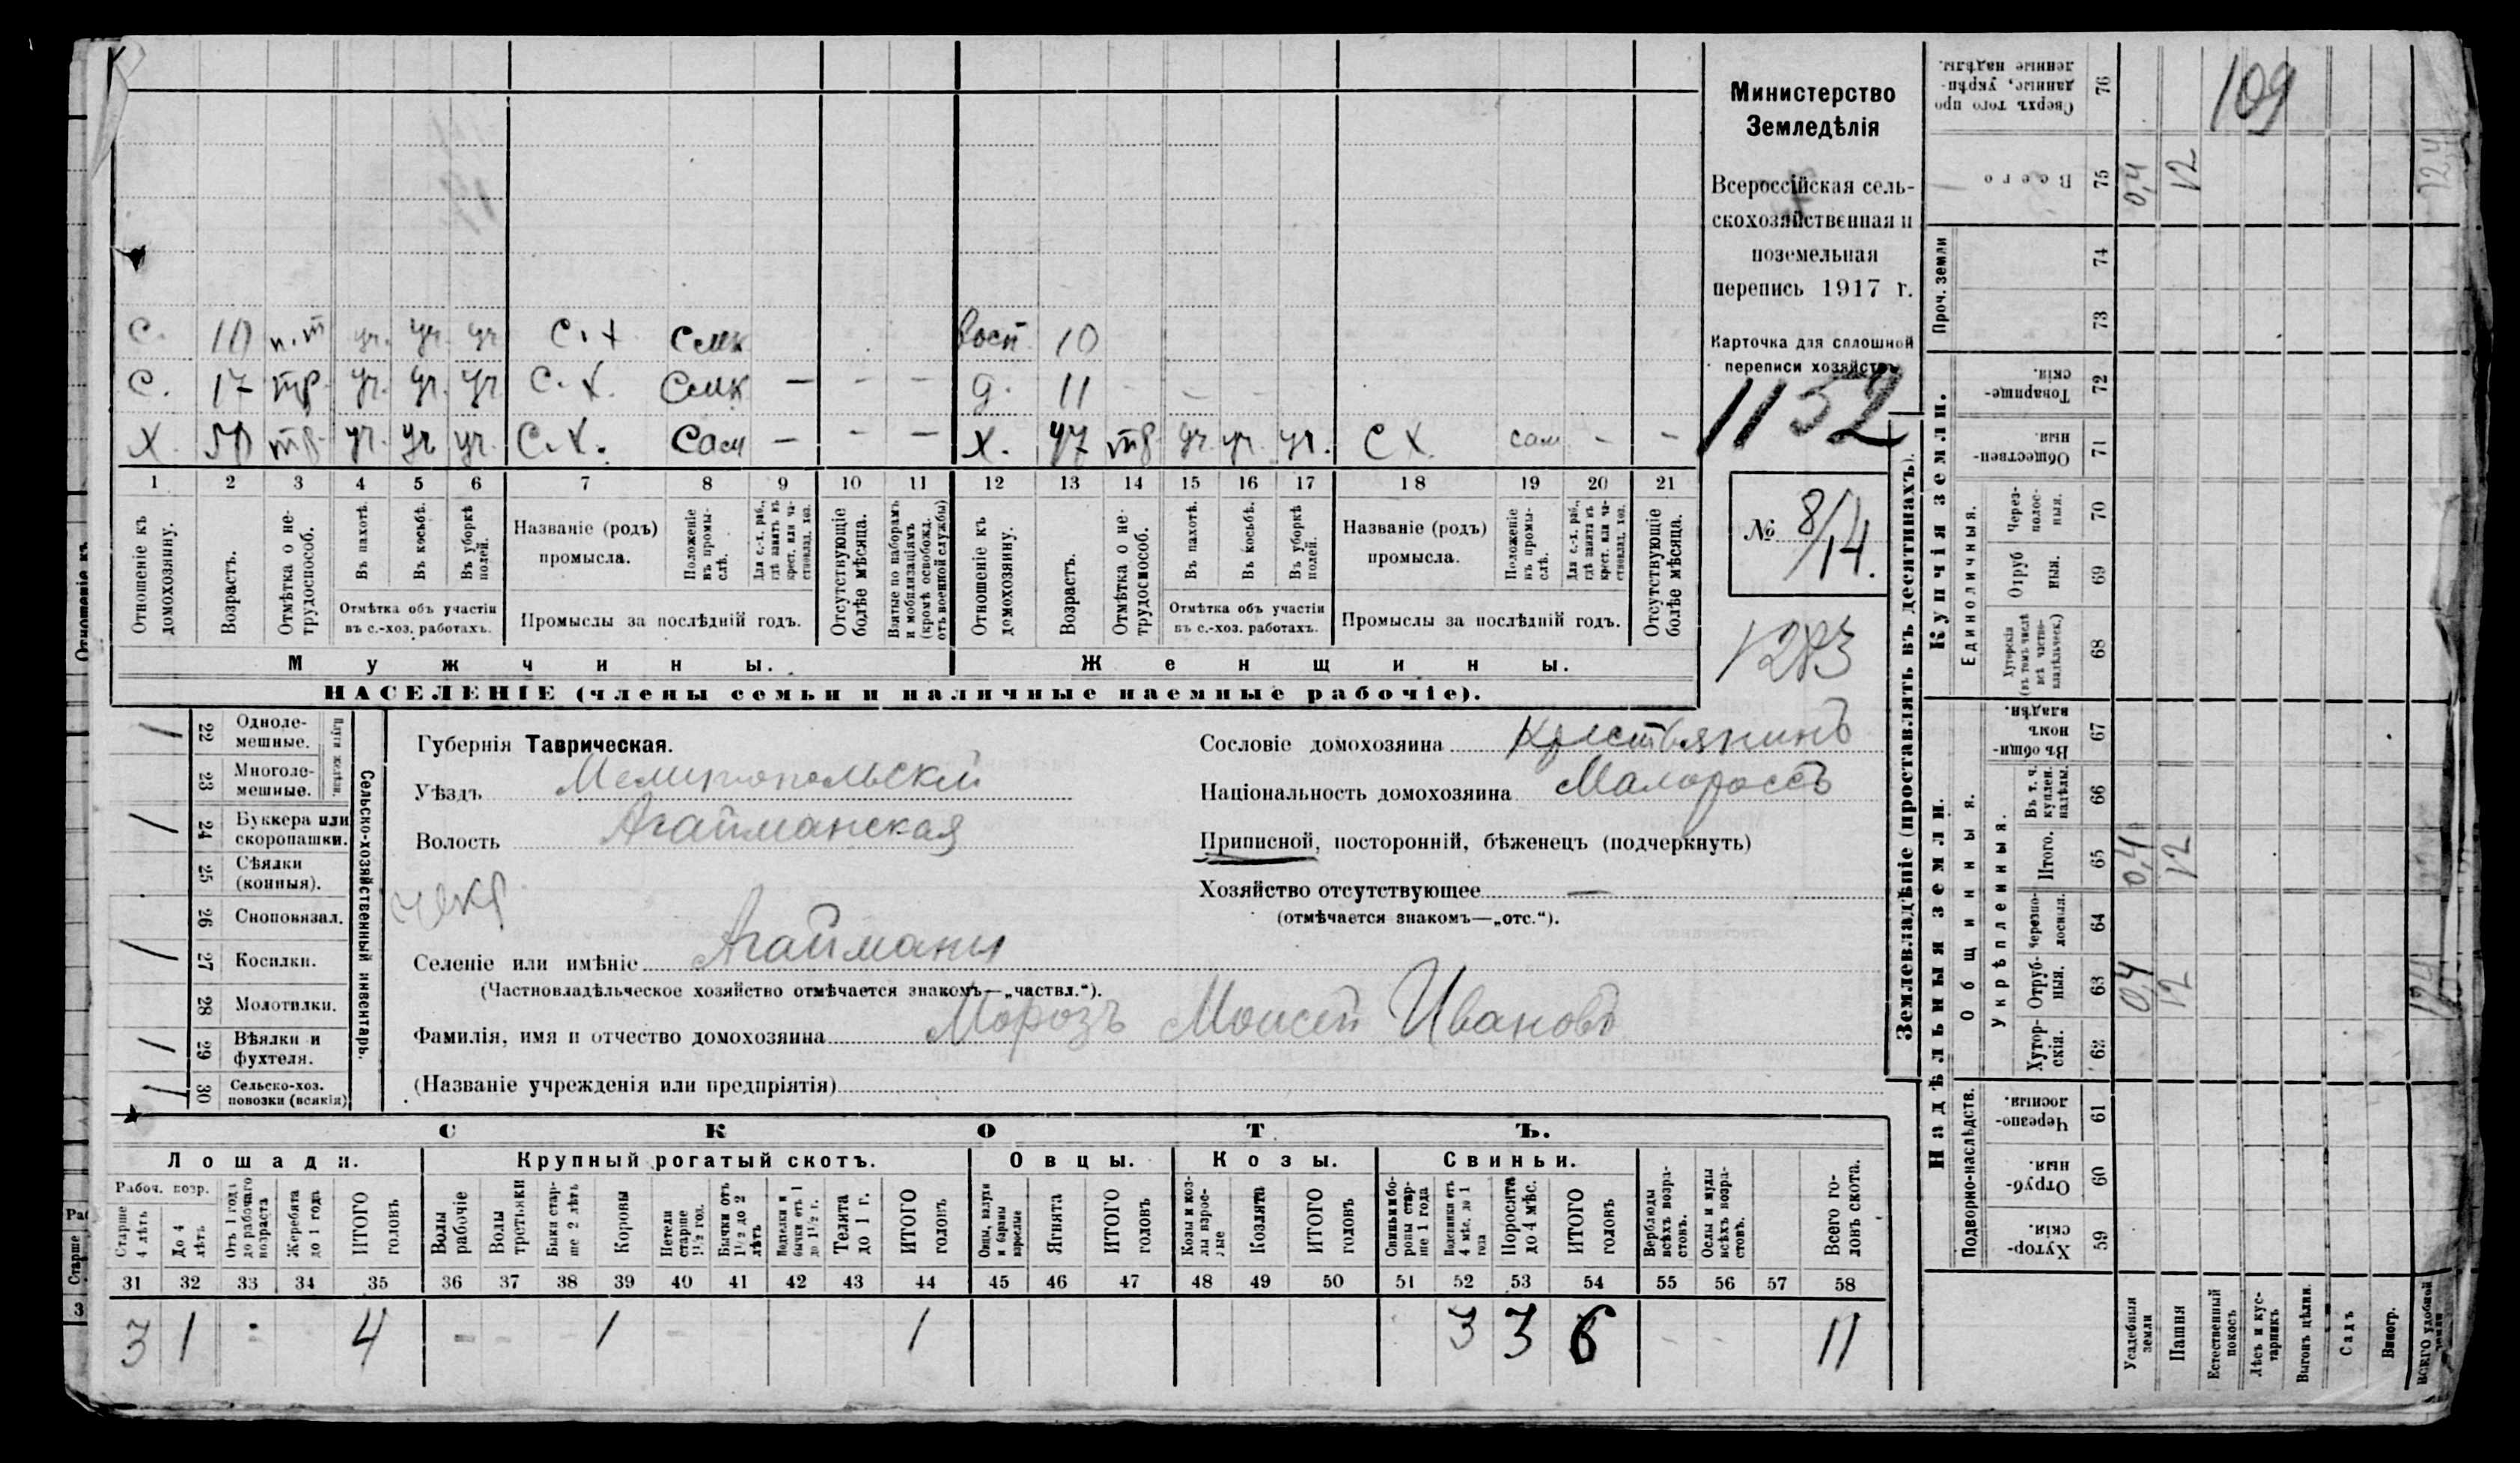 С. 10 п.т уч. уч. уч С.Х. Смк восп 10
С. 17 тр. уч. уч. уч С.Х. Смк — - — д. 11
Х. 50 тр. уч. уч уч. С.Х. Сам — - — Х. 47 тр уч. уч. уч. С Х. сам - -
1 2 3 4 5 6 7 8 9 10 11 12 13 14 15 16 17 18 19 20 21
Отношеніе къ домохозяину.
Возрастъ.
Отмѣтка о не-трудоспособ.
Въ пахотѣ.
Въ косьбѣ.
Въ уборкѣ полей.
Отмѣтка объ участіи въ с.-хоз. работахъ.
Названіе (родъ) промысла.
Положеніе въ промы-слѣ.
Для с.-х. раб., гдѣ занятъ въ крест. или ча-стновлад. хоз.
Промыслы за послѣдній годъ.
Отсутствующіе болѣе мѣсяца.
Взятые по наборамъ и мобилизаціямъ (кромѣ освобожд. отъ военной службы)
Отношеніе къ домохозяину.
Возрастъ.
Отмѣтка о не-трудоспособ.
Въ пахотѣ.
Въ косьбѣ.
Въ уборкѣ полей.
Отмѣтка объ участіи въ с.-хоз. работахъ.
Названіе (родъ) промысла.
Положеніе въ промы-слѣ.
Для с.-х. раб., гдѣ занята въ крест. или ча-стновлад. хоз.
Промыслы за послѣдній годъ.
Отсутствующіе болѣе мѣсяца.
Мужчины. Женщины.
НАСЕЛЕНІЕ (члены семьи и наличные наемные рабочіе).
Министерство
Земледѣлія
Всероссійская сель-
скохозяйственная и
поземельная
перепись 1917 г.
Карточка для сплошной
переписи хозяйствъ
1152
№ 8/14.
1283
Сельско-хозяйственный инвентарь.
Плуги желѣзн.
22 Одноле-мешные. 1
23 Многоле-мешные.
24 Буккера или скоропашки. 1
25 Сѣялки (конныя).
26 Сноповязал.
27 Косилки. 1
28 Молотилки.
29 Вѣялки и фухтеля. 1
30 Сельско-хоз. повозки (всякія) 1
Губернія Таврическая.
Уѣздъ Мелитопольскій
Волость Агайманская
Селеніе или имѣніе Агайманы
(Частновладѣльческое хозяйство отмѣчается знакомъ—„частвл.“).
Фамилія, имя и отчество домохозяина Морозъ Моисей Ивановъ
(Названіе учрежденія или предпріятія)
Сословіе домохозяина Крестьянинъ
Національность домохозяина Малороссъ
Приписной, посторонній, бѣженецъ (подчеркнуть)
Хозяйство отсутствующее —
(отмѣчается знакомъ—„отс.“).
СКОТЪ.
Лошади. Крупный рогатый скотъ. Овцы. Козы. Свиньи.
Рабоч. возр.
Старше 4 лѣтъ
До 4 лѣтъ.
Отъ 1 года до рабочаго возраста
Жеребята до 1 года
ИТОГО головъ
Волы рабочіе
Волы третьяки
Быки стар-ше 2 лѣтъ
Коровы
Нетели старше 1½ год.
Бычки отъ 1½ до 2 лѣтъ
Подтелки и бычки отъ 1 до 1½ г.
Телята до 1 г.
ИТОГО головъ
Овцы, валухи и бараны взрослые
Ягнята
ИТОГО головъ
Козы и коз-лы взрос-лые
Козлята
ИТОГО головъ
Свиньи и бо-ровы стар-ше 1 года
Подсвинки отъ 4 мѣс. до 1 года
Поросята до 4 мѣс.
ИТОГО головъ
Верблюды всѣхъ возра-стовъ.
Ослы и мулы всѣхъ возра-стовъ.
Всего го-ловъ скота.
31 32 33 34 35 36 37 38 39 40 41 42 43 44 45 46 47 48 49 50 51 52 53 54 55 56 57 58
3 1 - 4 - - - 1 - 1 3 3 6 - - 11
Землевладѣніе (проставлять въ десятинахъ).
Купчія земли.
Надѣльныя земли.
Проч. земли
Единоличныя.
Общинныя.
Укрѣпленныя.
Подворно-наслѣдств.
Сверхъ того про-данные, укрѣп-ленные надѣлы. 76
Всего 75 0,4 12
74
73
Товарище-скія. 72
Обществен-ныя. 71
Через-полос-ныя. 70
Отруб-ныя. 69
Хуторскія (въ томъ числѣ всѣ частно-владѣльческ.) 68
Въ общин-номъ владѣн. 67
Въ т. ч. куплен. надѣлы. 66
Итого. 65 0,4 12
Черезпо-лосныя. 64
Отруб-ныя. 63 0,4 12
Хутор-скія. 62
Черезпо-лосныя. 61
Отруб-ныя. 60
Хутор-скія. 59
Усадебныя земли
Пашня
Естественный покосъ
Лѣсъ и кус-тарникъ
Выгонъ цѣлин.
Садъ
Виногр.
ВСЕГО удобной земли
109
12,4